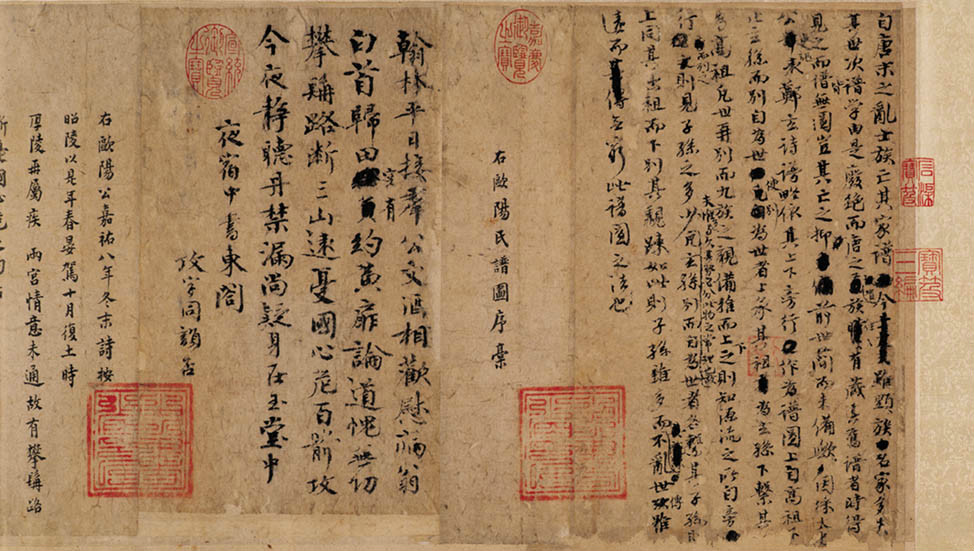 石渠寶笈
寶笈三編
自唐末之亂士族亡其家譜今雖顯族名家多失
其世次譜學由是廢絕而唐之遺族往往有藏其舊譜者時得
見之而譜皆無圖豈其亡之抑前世簡而未備歟因採太史
公史記表鄭玄詩譜略依其上下旁行作為譜圖上自高祖下
止玄孫而別自為世使別為世者上承其祖為玄孫下繫其
為高祖凡世再別而九族之親備推而上之則知源流之所自旁
行而列之則見子孫之多少夫惟多與久其勢必分此物之常理也故凡玄孫別而自為世者各繫其子孫則
上同其出祖而下別其親踈如此則子孫雖多而不亂世傳雖
遠而無窮此譜圖之法也
嘉慶御覽之寶
右歐陽氏譜圖序稾
翰林平日接羣公文酒相歡慰病翁
白首歸田空有約黃扉論道愧無功
攀髯路斷三山遠憂國心危百箭攻
今夜靜聽丹禁漏尚疑身在玉堂中
夜宿中書東閣
攻字同韻否
宣統御覽之寶
右歐陽公嘉祐八年冬末詩按
昭陵以是年春晏駕十月復土時
厚陵再屬疾 兩宮情意未通故有攀髯路